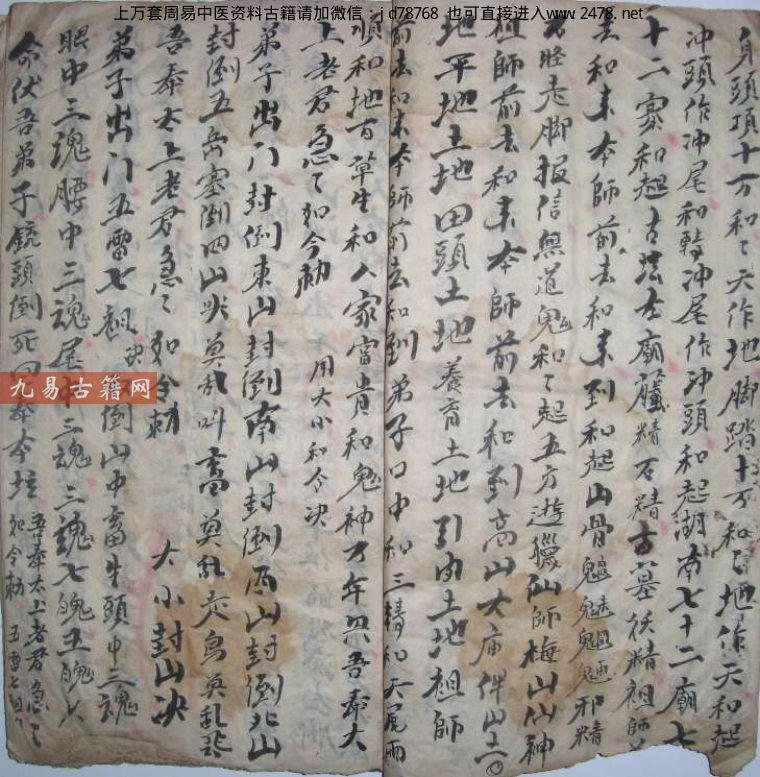 上万套周易中医资料古籍请加微信:jd78768 也可直接进入www.2478.net
身頭頂十万和之天作地脚踏十万和昌地作天和起
冲頭作冲尾和轉冲尾作冲頭和起湖南七十二廟七
十二寨和起古坛古廟精石精古墓妖精祖師
去和来本師前去和来到和起山骨魑魅魍魎邪精
怪走脚报信無道鬼和之起五方遊獵仙師梅山仙神
祖師前去和来本師前去和到高山大庙伴山土
地平地土地田頭土地養育土地引由土地祖師
前去和来本師前去和到弟子口中和三樁和天尾雨
順和地百草生和人家富貴和鬼神万年兴吾奉太
上老君急之如今勅 用大小和令决
弟子出门封倒東山封倒南山封倒西山封倒北山
封倒五岳塞倒四山尖莫乱叫畜莫乱交鳥莫乱飛
吾奉太上老君急之如令勅 大小封山决
弟子出门五雷七祖倒山中畜生頭中三魂
眼中三魂腰中三魂尾中三魂三魂七魄五魄
命伏吾弟子銃頭倒死回奉本坛吾奉太上老君急之
如令勅 五雷七祖
九易古籍网